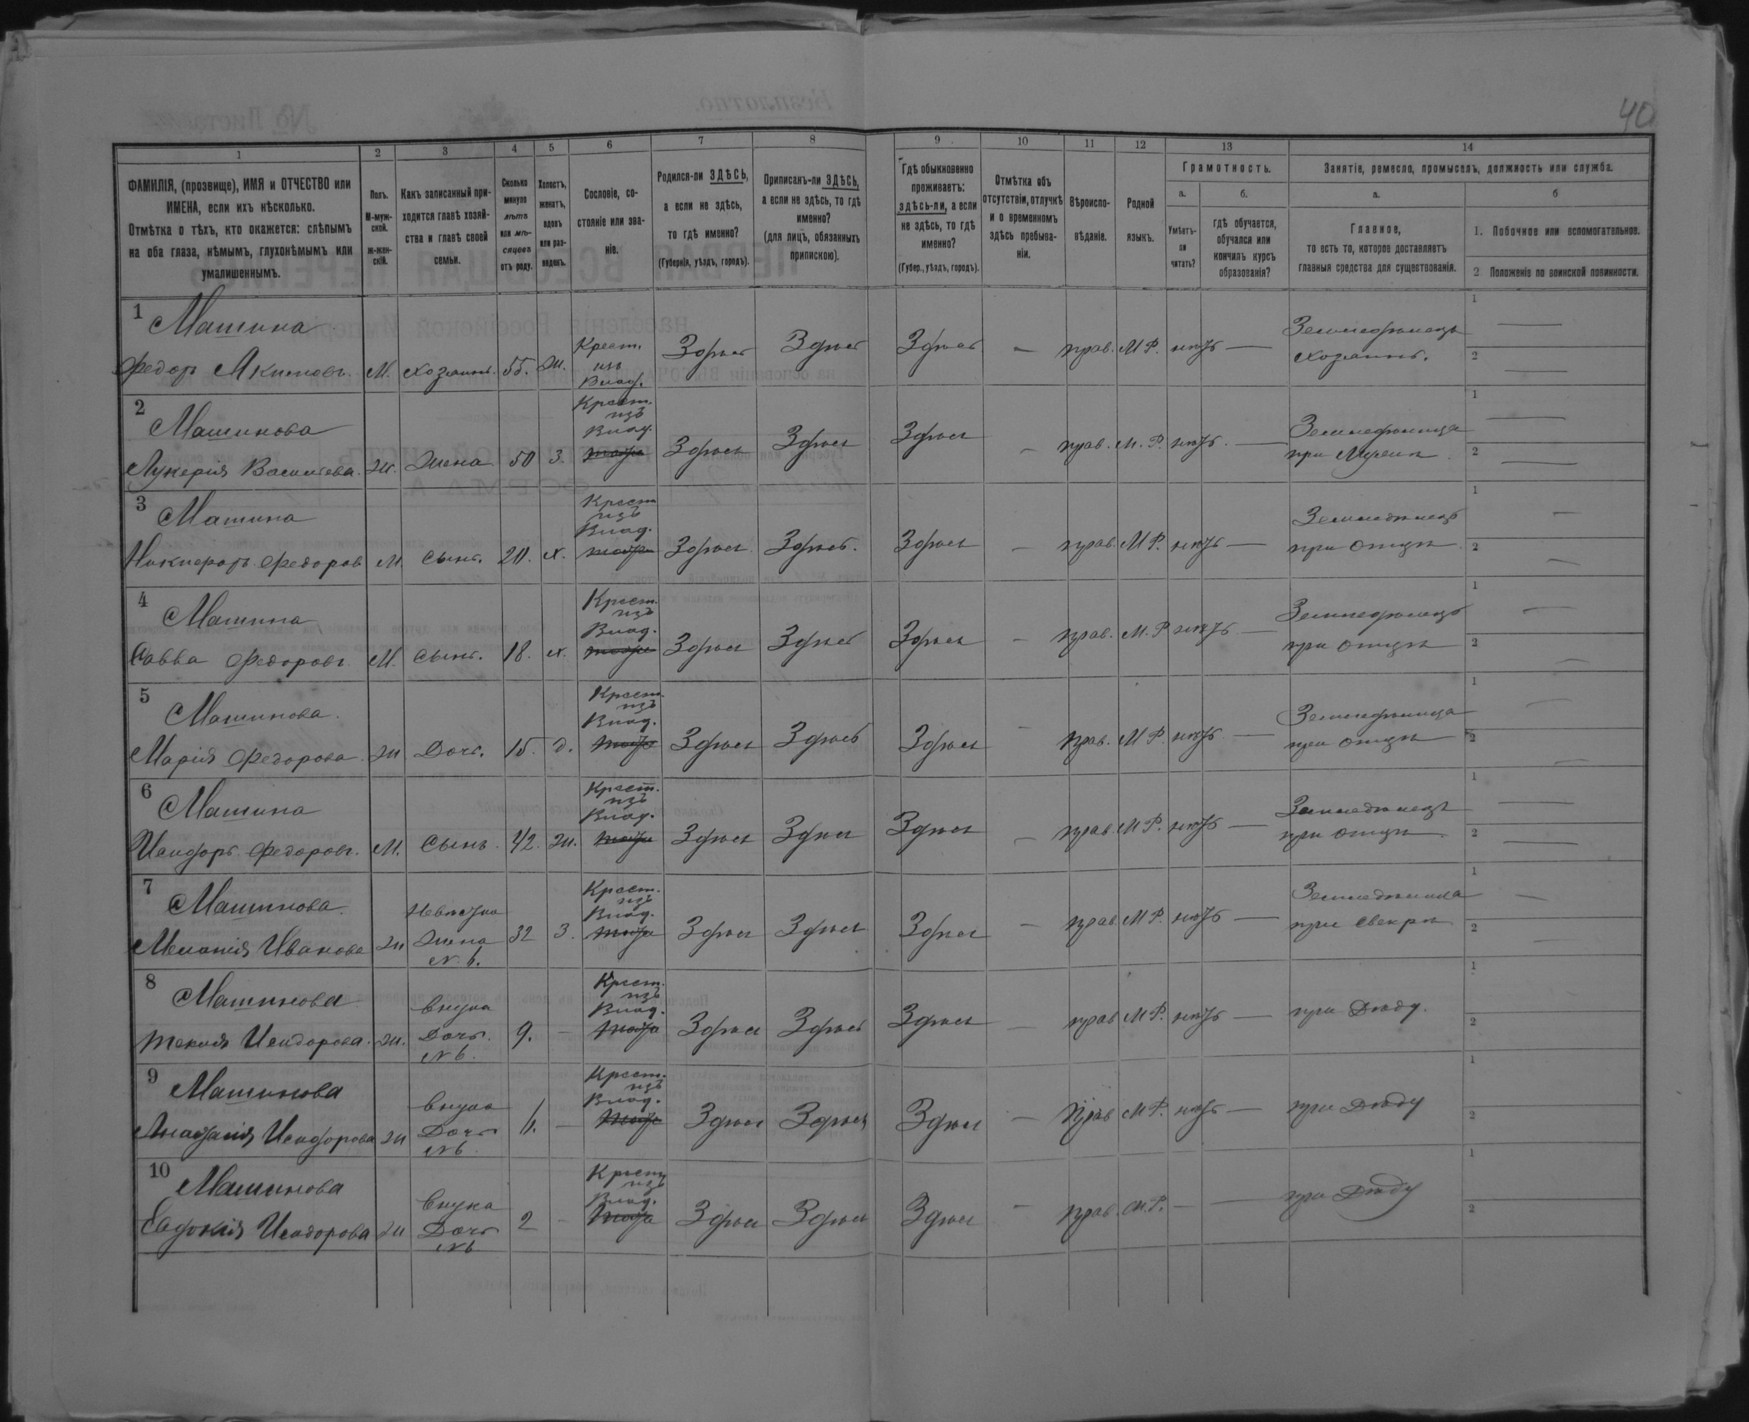 40
1 2 3 4 5 6 7 8 9 10 11 12 13 14
ФАМИЛІЯ, (прозвище), ИМЯ и ОТЧЕСТВО или
ИМЕНА, если ихъ нѣсколько.
Отмѣтка о тѣхъ, кто окажется: слѣпымъ
на оба глаза, нѣмымъ, глухонѣмымъ или
умалишеннымъ.
Полъ.
М-муж-
ской.
Ж-жен-
скій.
Какъ записанный при-
ходится главѣ хозяй-
ства и главѣ своей
семьи.
Сколько
минуло
лѣтъ
или мѣ-
сяцевъ
отъ роду.
Холостъ,
женатъ,
вдовъ
или раз-
веденъ.
Сословіе, со-
стояніе или зва-
ніе.
Родился-ли ЗДѢСЬ,
а если не здѣсь,
то гдѣ именно?
(Губернія, уѣздъ, городъ).
Приписанъ-ли ЗДѢСЬ,
а если не здѣсь, то гдѣ
именно?
(для лицъ, обязанныхъ
припискою).
Гдѣ обыкновенно
проживаетъ:
ЗДѢСЬ-ЛИ, а если
не здѣсь, то гдѣ
именно?
(Губер., уѣздъ, городъ).
Отмѣтка объ
отсутствіи, отлучкѣ
и о временномъ
здѣсь пребыва-
ніи.
Вѣроиспо-
вѣданіе.
Родной
языкъ.
Грамотность.
а.
Умѣетъ-
ли
читать?
б.
гдѣ обучается,
обучался или
кончилъ курсъ
образованія?
Занятіе, ремесло, промыселъ, должность или служба.
а.
Главное,
то есть то, которое доставляетъ
главныя средства для существованія.
б
1. Побочное или вспомогательное.
2 Положеніе по воинской повинности.
1 Машина Крест. Здѣсь Здѣсь Здѣсь — прав. М.Р. нѣтъ — Земледѣлецъ 1 —
Федоръ Акимовъ М. хозяинъ. 55. ж. изъ Влад. хозяинъ. 2 —
2 Машинова Крест. изъ Влад. Здѣсь Здѣсь Здѣсь — прав. М.Р. нѣтъ. — Земледѣлица 1 —
Лукерія Васильева. ж. Жена 50 з. при Мужѣ 2 —
3 Машина Крест. изъ Влад. Здѣсь Здѣсь. Здѣсь — прав. М.Р. нѣтъ — Земледѣлецъ 1 —
Никифоръ Федоровъ М. сынъ. 20. х. при отцѣ 2 —
4 Машина Крест. изъ Влад. Здѣсь Здѣсь Здѣсь — прав. М.Р. нѣтъ — Земледѣлецъ 1 —
Савва Федоровъ М. сынъ. 18. х. при отцѣ 2 —
5 Машинова. Крест. изъ Влад. Здѣсь Здѣсь Здѣсь — прав. М.Р. нѣтъ — Земледѣлица 1 —
Марія Федорова ж Дочь. 15. д. при отцѣ 2 —
6 Машина Крест. изъ Влад. Здѣсь Здѣсь Здѣсь — прав М.Р. нѣтъ — Земледѣлецъ 1 —
Исидоръ Федоровъ. М. сынъ 42. ж. при отцѣ 2 —
7 Машинова. Невѣстка Крест. изъ Влад. Здѣсь Здѣсь Здѣсь — прав М.Р. нѣтъ — Земледѣлица 1 —
Меланія Иванова ж Жена N. 6. 32 з. при свекрѣ 2 —
8 Машинова Внука Крест. изъ Влад. Здѣсь Здѣсь Здѣсь — прав М.Р. нѣтъ — при Дѣду. 1
Текля Исидорова. ж. Дочь. N 6. 9. — 2
9 Машинова Внука Крест. изъ Влад. Здѣсь Здѣсь Здѣсь — Прав М.Р. нѣтъ — при Дѣду 1
Исидорова ж Дочь N 6. 6. — 2
10 Машинова Внука Крест изъ Влад. Здѣсь Здѣсь Здѣсь — прав. М.Р. — — при Дѣду 1
Евдокія Исидорова ж Дочь N 6 2 — 2